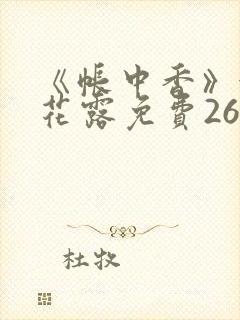 《帳中香》
花露免費26
杜牧